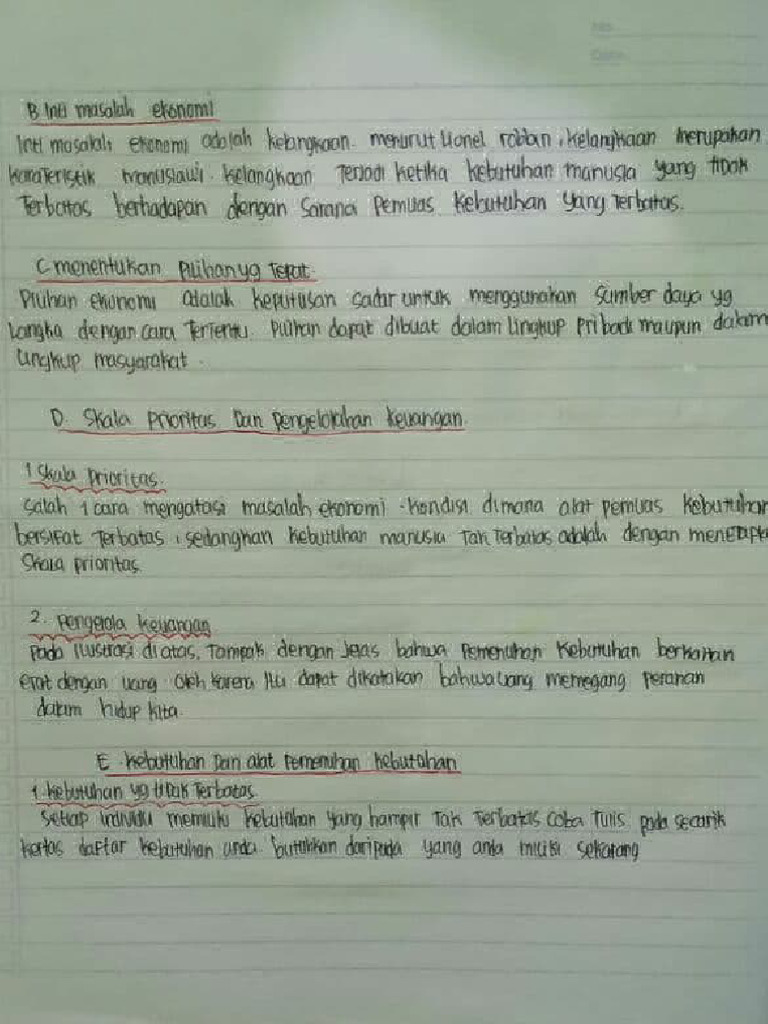 No
Date
B Inti masalah ekonomi
Inti masalah ekonomi adalah kelangkaan. menurut Lionel robban, kelangkaan merupakan
karateristik manusiawi. kelangkaan Terjadi ketika kebutuhan manusia yang tidak
Terbatas berhadapan dengan Sarana Pemuas Kebutuhan Yang Terbatas.
C menentukan pilihan yg Tepat.
Pilihan ekonomi adalah keputusan sadar untuk menggunakan sumber daya yg
Langka dengan cara Tertentu. Pilihan dapat dibuat dalam lingkup pribadi maupun dalam
lingkup masyarakat.
D. Skala Prioritas Dan pengelolahan keuangan.
1 Skala prioritas.
Salah 1 cara mengatasi masalah ekonomi - kondisi dimana alat pemuas kebutuhan
bersifat Terbatas, sedangkan kebutuhan manusia Tak Terbatas adalah dengan menetapk
Skala prioritas.
2. Pengelola keuangan
Pada Ilustrasi di atas, Tampak dengan jelas bahwa Pemenuhan Kebutuhan berkaitan
erat dengan uang. Oleh karena Itu dapat dikatakan bahwa uang memegang peranan
dalam hidup kita.
E. kebutuhan Dan alat Pemenuhan kebutahan
1. kebutuhan yg tidak Terbatas.
Setiap individu memiliki kebutuhan yang hampir Tak Terbatas Coba Tulis pada secarik
kertas daftar kebutuhan anda butuhkan daripada yang anda miliki sekarang